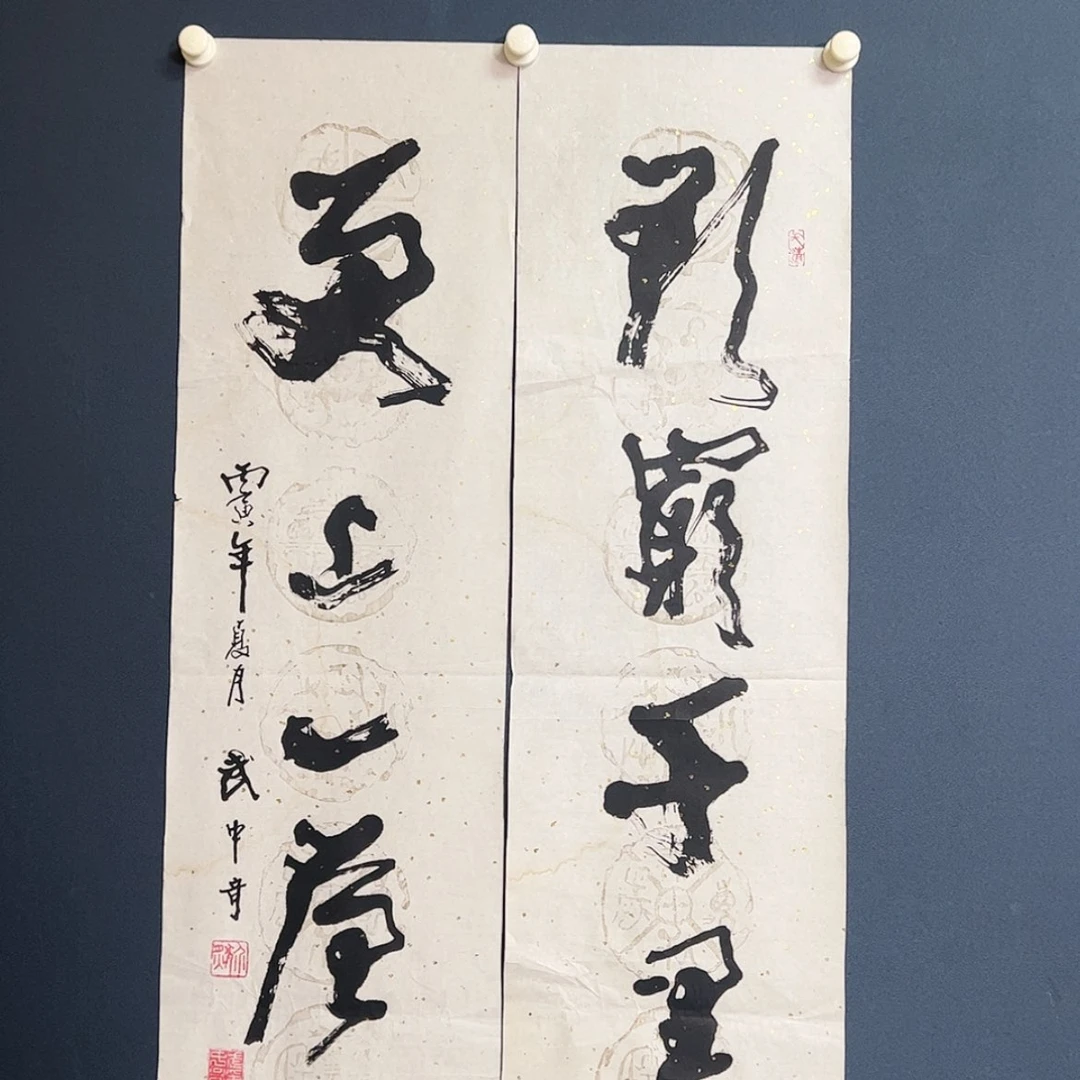 欲穷千里
更上一层
丙寅年夏月 武中奇